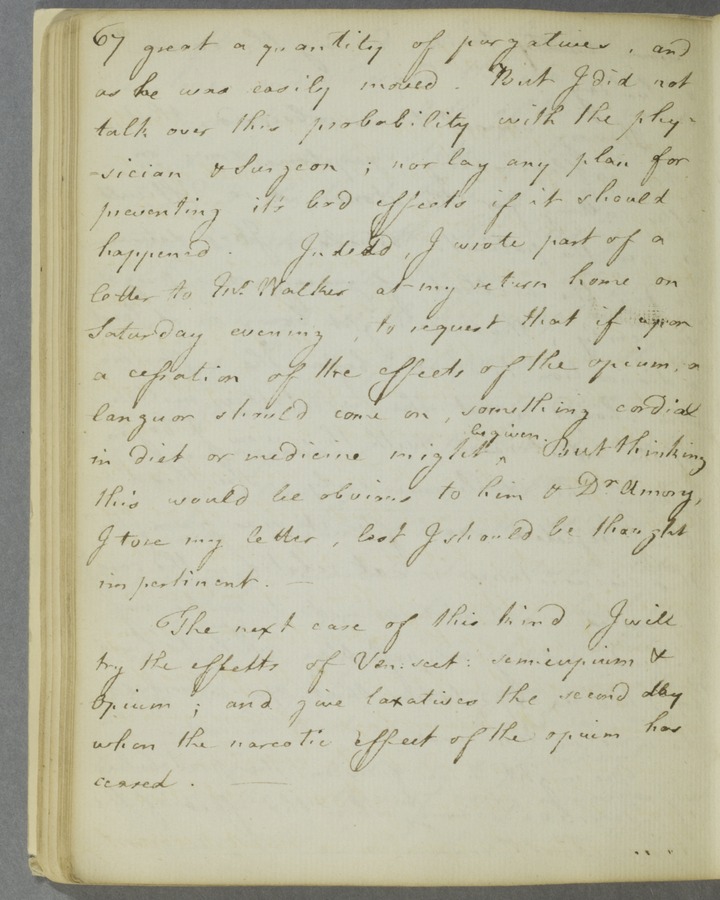 67 great a quantity of purgatives, and
as he was easily moved. But I did not
talk over this probability with the phy-
-sician & Surgeon; nor lay any plan for
preventing it's bad effects if it should
happened. Indeed, I wrote part of a
letter to Mr. Walker at my return home on
Saturday evening, to request that if upon
a cessation of the effects of the opium, a
languor should come on, something cordial
be given.
in diet or medicine might ^ But thinking
this would be obvious to him & Dr Amory,
I tore my letter, lest I should be thought
impertinent. —
The next case of this kind, I will
try the effects of Ven: sect: semicupium &
Opium; and give laxatives the second day
when the narcotic effect of the opium has
ceased. —